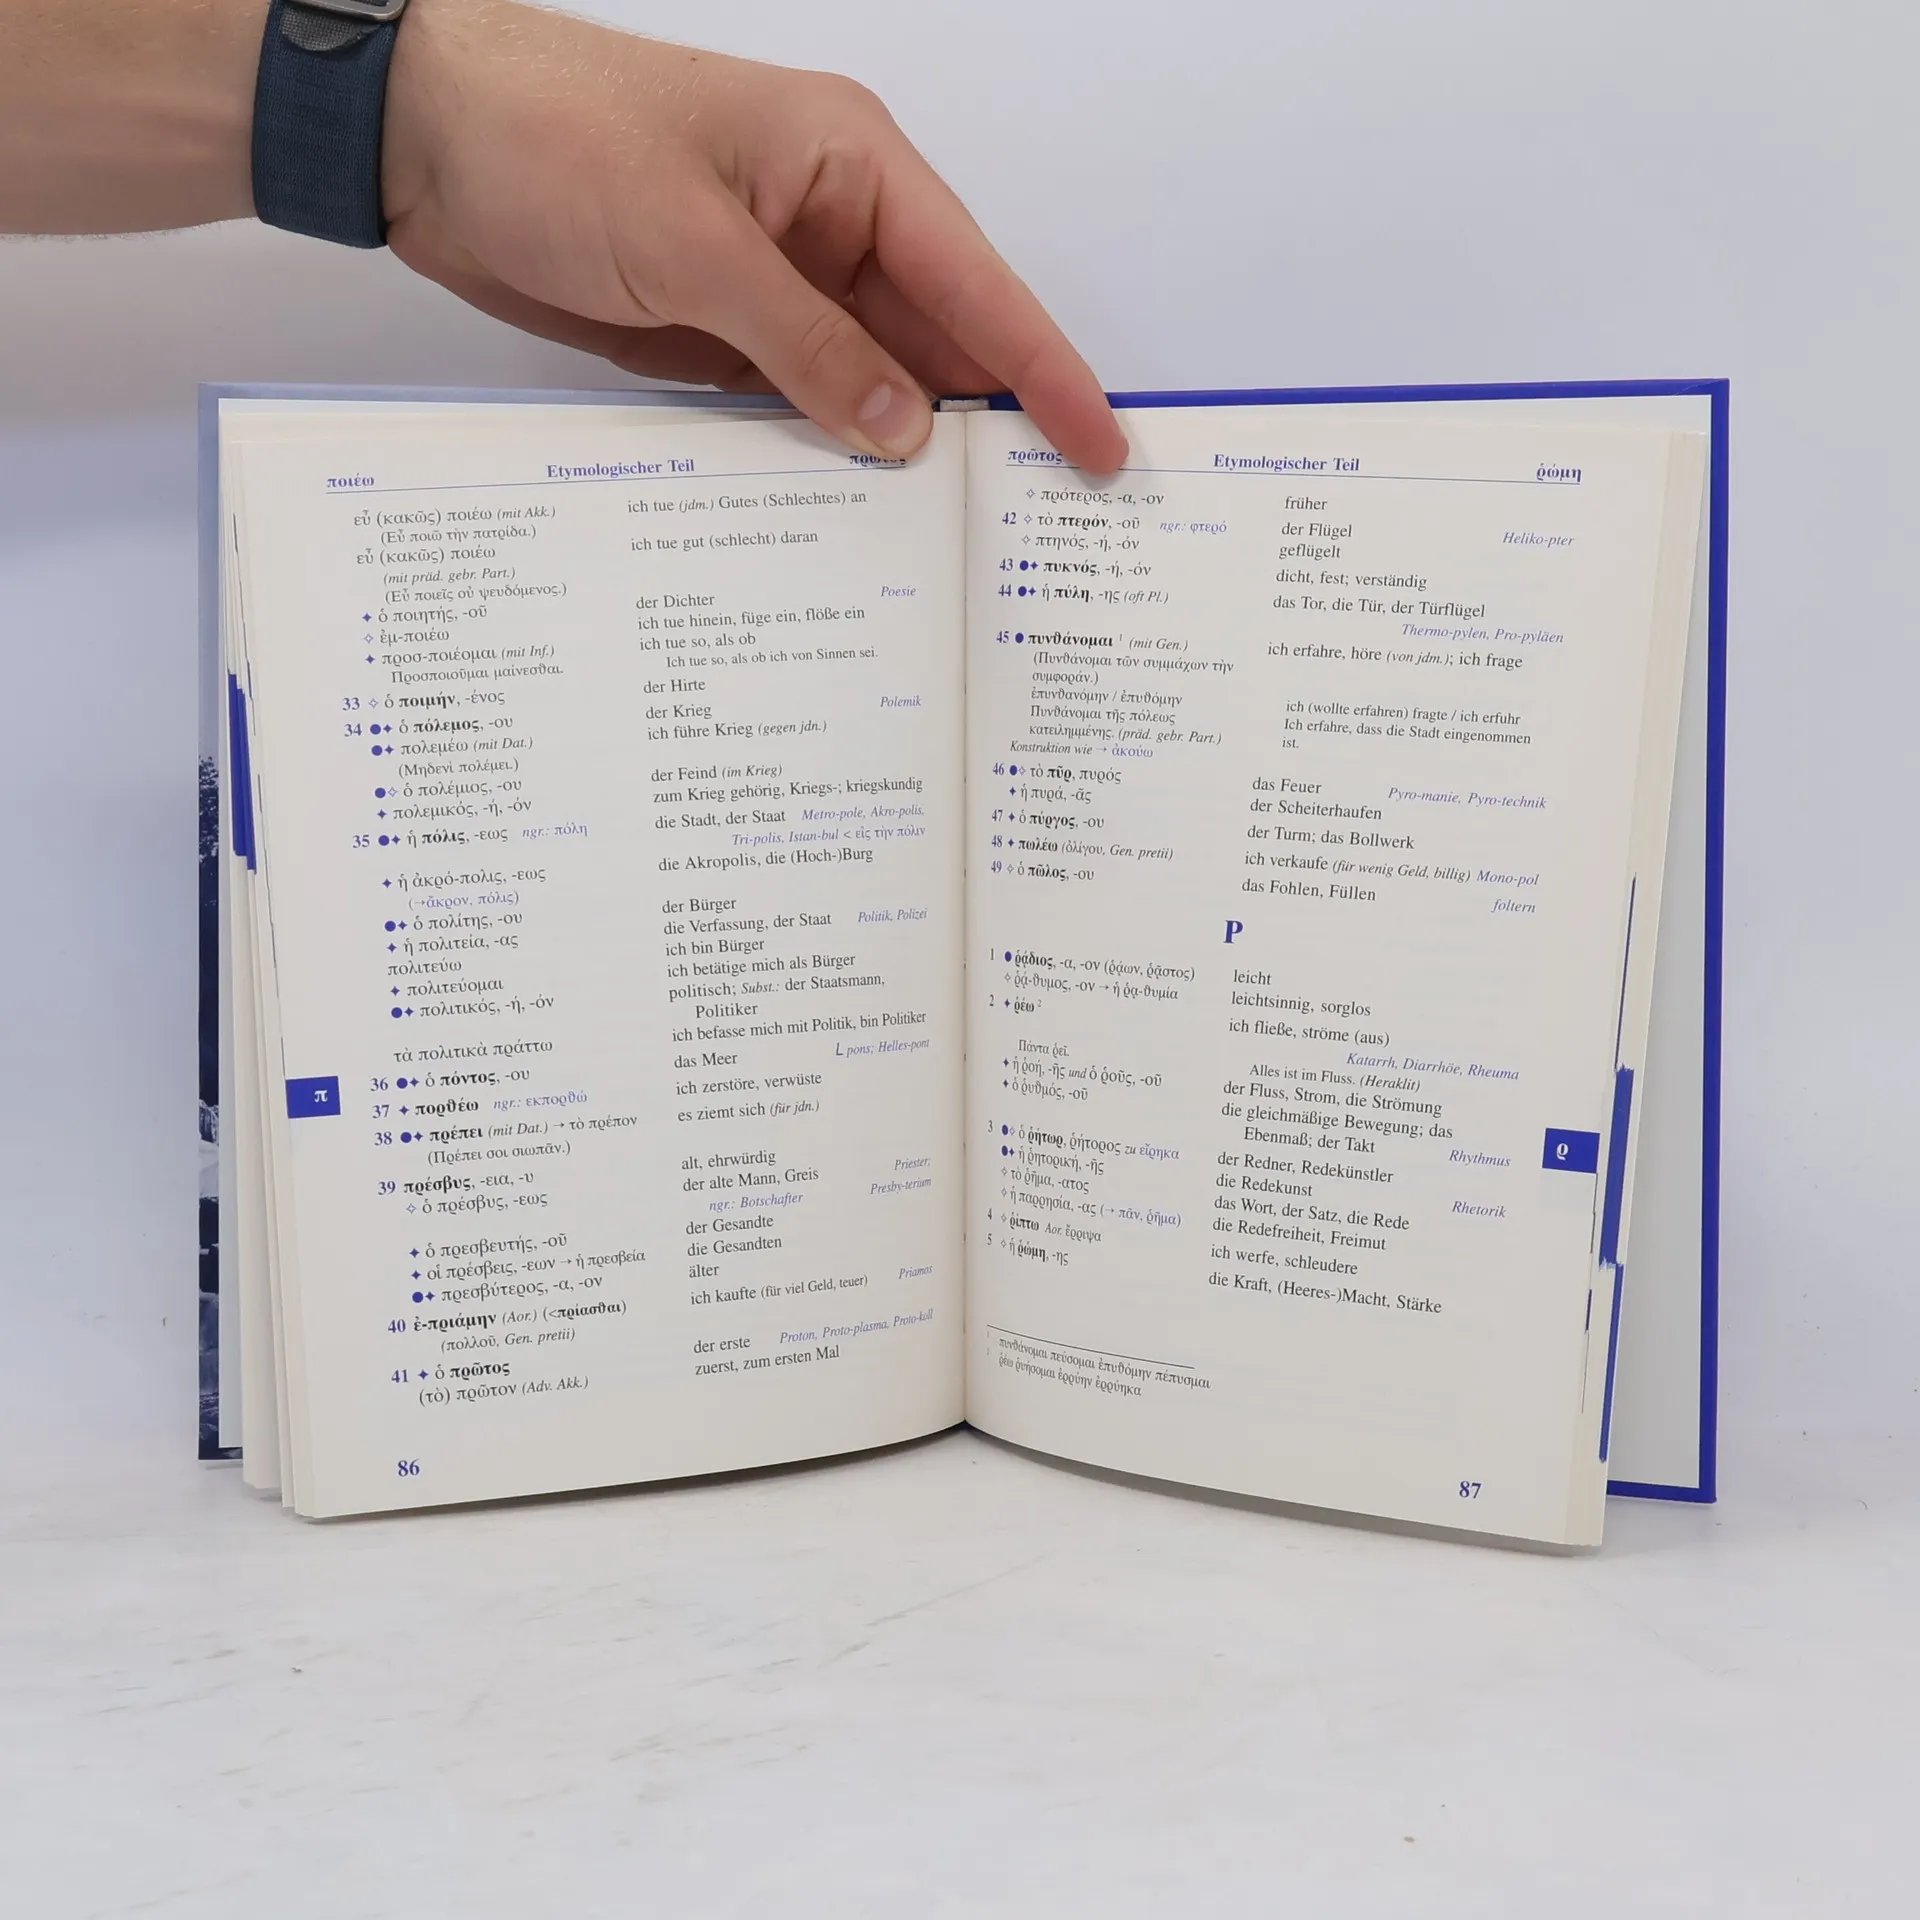 ποιέω Etymologischer Teil πρῶτος
εὖ (κακῶς) ποιέω (mit Akk.) ich tue (jdm.) Gutes (Schlechtes) an
(Εὖ ποιῶ τὴν πατρίδα.)
εὖ (κακῶς) ποιέω ich tue gut (schlecht) daran
(mit präd. gebr. Part.)
(Εὖ ποιεῖς οὐ ψευδόμενος.)
✦ ὁ ποιητής, -οῦ der Dichter Poesie
✧ ἐμ-ποιέω ich tue hinein, füge ein, flöße ein
✦ προσ-ποιέομαι (mit Inf.) ich tue so, als ob
Προσποιοῦμαι μαίνεσθαι. Ich tue so, als ob ich von Sinnen sei.
33 ✧ ὁ ποιμήν, -ένος der Hirte
34 ●✦ ὁ πόλεμος, -ου der Krieg Polemik
●✦ πολεμέω (mit Dat.) ich führe Krieg (gegen jdn.)
(Μηδενὶ πολέμει.)
●✧ ὁ πολέμιος, -ου der Feind (im Krieg)
✦ πολεμικός, -ή, -όν zum Krieg gehörig, Kriegs-; kriegskundig
35 ●✦ ἡ πόλις, -εως ngr.: πόλη die Stadt, der Staat Metro-pole, Akro-polis,
Tri-polis, Istan-bul < εἰς τὴν πόλιν
✦ ἡ ἀκρό-πολις, -εως die Akropolis, die (Hoch-)Burg
(→ἄκρον, πόλις)
●✦ ὁ πολίτης, -ου der Bürger
✦ ἡ πολιτεία, -ας die Verfassung, der Staat Politik, Polizei
πολιτεύω ich bin Bürger
✦ πολιτεύομαι ich betätige mich als Bürger
●✦ πολιτικός, -ή, -όν politisch; Subst.: der Staatsmann,
Politiker
τὰ πολιτικὰ πράττω ich befasse mich mit Politik, bin Politiker
36 ●✦ ὁ πόντος, -ου das Meer L pons; Helles-pont
37 ✦ πορθέω ngr.: εκπορθώ ich zerstöre, verwüste
38 ●✦ πρέπει (mit Dat.) → τὸ πρέπον es ziemt sich (für jdn.)
(Πρέπει σοι σιωπᾶν.)
39 πρέσβυς, -εια, -υ alt, ehrwürdig
✧ ὁ πρέσβυς, -εως der alte Mann, Greis Priester;
ngr.: Botschafter Presby-terium
✦ ὁ πρεσβευτής, -οῦ der Gesandte
✦ οἱ πρέσβεις, -εων → ἡ πρεσβεία die Gesandten
●✦ πρεσβύτερος, -α, -ον älter
40 ἐ-πριάμην (Aor.) (<πρίασθαι) ich kaufte (für viel Geld, teuer) Priamos
(πολλοῦ, Gen. pretii)
41 ✦ ὁ πρῶτος der erste Proton, Proto-plasma, Proto-koll
(τὸ) πρῶτον (Adv. Akk.) zuerst, zum ersten Mal
π
86
πρῶτος Etymologischer Teil ῥώμη
✧ πρότερος, -α, -ον früher
42 ✧ τὸ πτερόν, -οῦ ngr.: φτερό der Flügel Heliko-pter
✧ πτηνός, -ή, -όν geflügelt
43 ●✦ πυκνός, -ή, -όν dicht, fest; verständig
44 ●✦ ἡ πύλη, -ης (oft Pl.) das Tor, die Tür, der Türflügel
Thermo-pylen, Pro-pyläen
45 ● πυνθάνομαι ¹ (mit Gen.) ich erfahre, höre (von jdm.); ich frage
(Πυνθάνομαι τῶν συμμάχων τὴν
συμφοράν.)
ἐπυνθανόμην / ἐπυθόμην ich (wollte erfahren) fragte / ich erfuhr
Πυνθάνομαι τῆς πόλεως Ich erfahre, dass die Stadt eingenommen
κατειλημμένης. (präd. gebr. Part.) ist.
Konstruktion wie → ἀκούω
46 ●✧ τὸ πῦρ, πυρός das Feuer Pyro-manie, Pyro-technik
✦ ἡ πυρά, -ᾶς der Scheiterhaufen
47 ✦ ὁ πύργος, -ου der Turm; das Bollwerk
48 ✦ πωλέω (ὀλίγου, Gen. pretii) ich verkaufe (für wenig Geld, billig) Mono-pol
49 ✧ ὁ πῶλος, -ου das Fohlen, Füllen foltern
Ρ
1 ● ῥᾴδιος, -α, -ον (ῥᾴων, ῥᾷστος) leicht
✧ ῥᾴ-θυμος, -ον → ἡ ῥᾳ-θυμία leichtsinnig, sorglos
2 ✦ ῥέω ² ich fließe, ströme (aus)
Katarrh, Diarrhöe, Rheuma
Πάντα ῥεῖ. Alles ist im Fluss. (Heraklit)
✦ ἡ ῥοή, -ῆς und ὁ ῥοῦς, -οῦ der Fluss, Strom, die Strömung
✦ ὁ ῥυθμός, -οῦ die gleichmäßige Bewegung; das
Ebenmaß; der Takt Rhythmus
3 ●✧ ὁ ῥήτωρ, ῥήτορος zu εἴρηκα der Redner, Redekünstler
●✦ ἡ ῥητορική, -ῆς die Redekunst Rhetorik
✧ τὸ ῥῆμα, -ατος das Wort, der Satz, die Rede
✧ ἡ παρρησία, -ας (→ πᾶν, ῥῆμα) die Redefreiheit, Freimut
4 ✧ ῥίπτω Aor. ἔρριψα ich werfe, schleudere
5 ✧ ἡ ῥώμη, -ης die Kraft, (Heeres-)Macht, Stärke
ρ
¹ πυνθάνομαι πεύσομαι ἐπυθόμην πέπυσμαι
ῥέω ῥυήσομαι ἐρρύην ἐρρύηκα
87